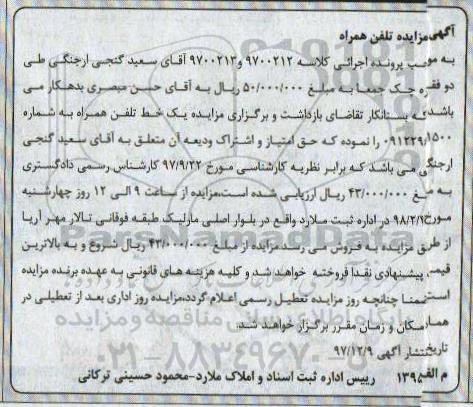 آگهی مزایده تلفن همراه
به موجب پرونده اجرائی کلاسه ۹۷۰۰۲۱۲ و ۹۷۰۰۲۱۳ آقای سعید گنجی ارجنگی طی
دو فقره چک جمعا به مبلغ ۵۰/۰۰۰/۰۰۰ ریال به آقای حسن مبصری بدهکار می
باشد که بستانکار تقاضای بازداشت و برگزاری مزایده یک خط تلفن همراه به شماره
را نموده که حق امتیاز و اشتراک ودیعه آن متعلق به آقای سعید گنجی
ارجنگی می باشد که برابر نظریه کارشناسی مورخ ۹۷/۹/۲۲ کارشناس رسمی دادگستری
به مبلغ ۴۳/۰۰۰/۰۰۰ ریال ارزیابی شده است،مزایده از ساعت ۹ الی ۱۲ روز چهارشنبه
مورخ ۹۸/۲/۹ در اداره ثبت ملارد واقع در بلوار اصلی مارلیک طبقه فوقانی تالار مهر آریا
از طریق مزایده به فروش می رسد مزایده از مبلغ ۴۳/۰۰۰/۰۰۰ ریال شروع و به بالاترین
قیمت پیشنهادی نقدا فروخته خواهد شد و کلیه هزینه های قانونی به عهده برنده مزایده
است ضمنا چنانچه روز مزایده تعطیل رسمی اعلام گردد،مزایده روز اداری بعد از تعطیلی در
همان مکان و زمان مقرر برگزار خواهد شد.
تاریخ انتشار آگهی ۹۷/۱۲/۹
م الف ۱۳۹۵ رییس اداره ثبت اسناد و املاک ملارد-محمود حسینی ترکانی
ParsNamadData
پایگاه اطلاع رسانی مناقصه و مزایده
۰۲۱-۸۸۳۴۹۶۷۰-۵